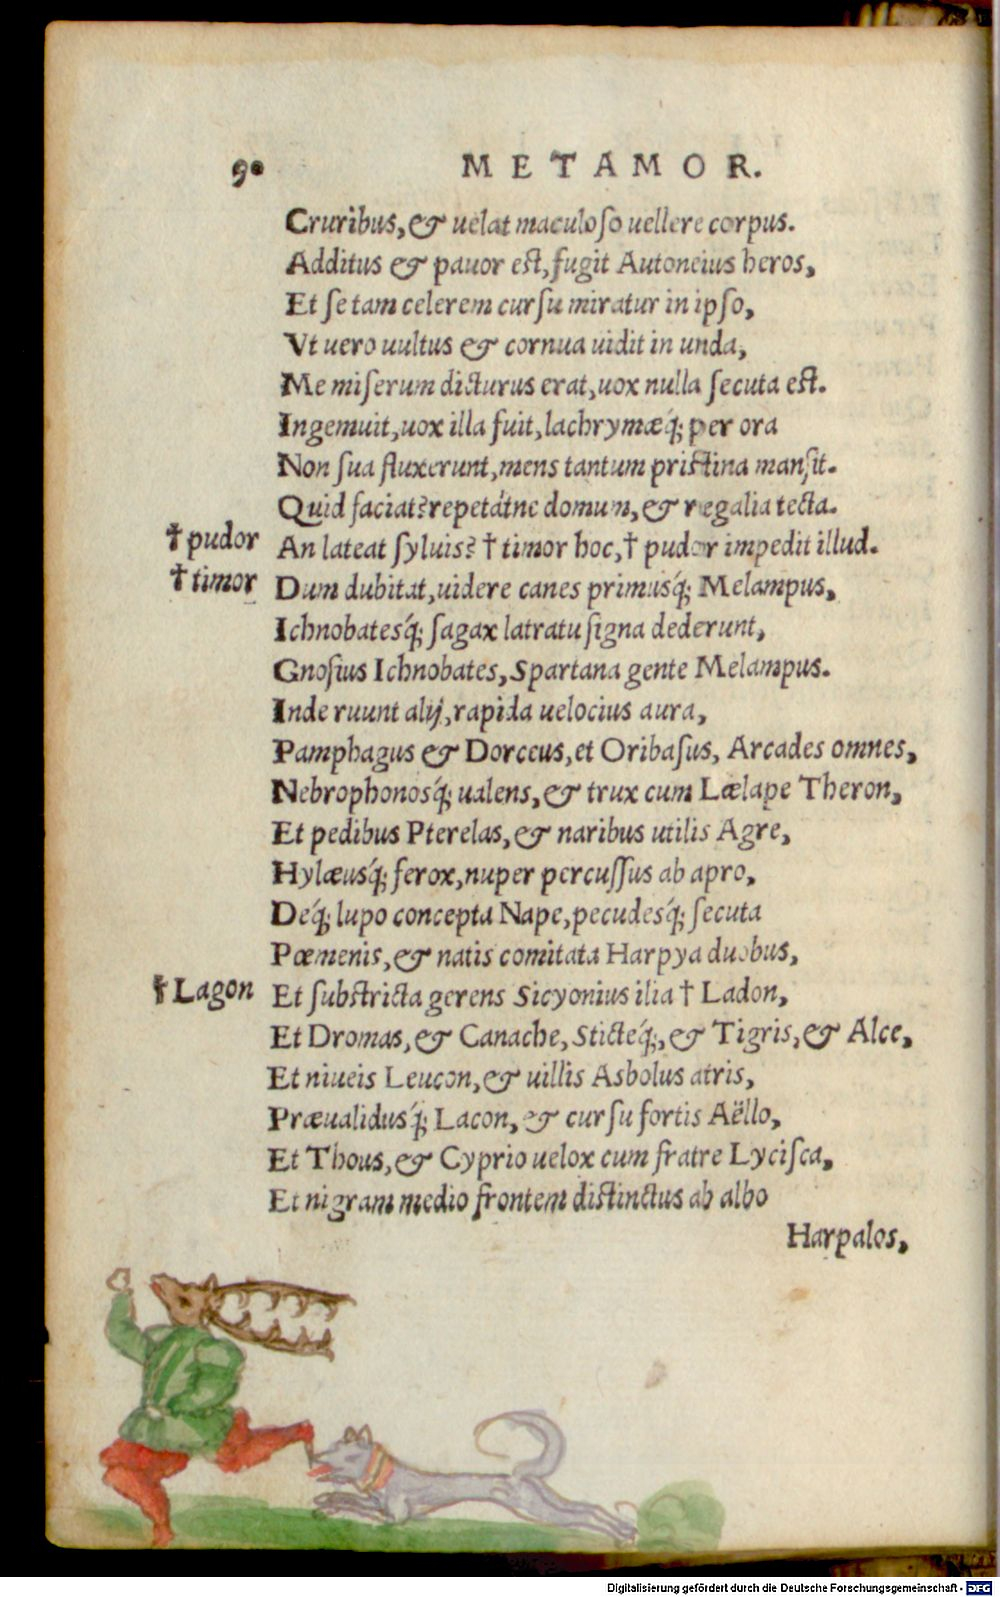 90 METAMOR.
Cruribus, & uelat maculoſo uellere corpus.
Additus & pauor eſt, fugit Autoneius heros,
Et ſe tam celerem curſu miratur in ipſo,
Vt uero uultus & cornua uidit in unda,
Me miſerum dicturus erat, uox nulla ſecuta eſt.
Ingemuit, uox illa fuit, lachrymæq́; per ora
Non ſua fluxerunt, mens tantum priſtina manſit.
Quid faciat? repetátne domum, & regalia tecta.
†pudor An lateat ſyluis? † timor hoc, † pudor impedit illud.
†timor Dum dubitat, uidere canes primusq́; Melampus,
Ichnobatesq́; ſagax latratu ſigna dederunt,
Gnoſius Ichnobates, Spartana gente Melampus.
Inde ruunt alij, rapida uelocius aura,
Pamphagus & Dorceus, et Oribaſus, Arcades omnes,
Nebrophonosq́; ualens, & trux cum Lælape Theron,
Et pedibus Pterelas, & naribus utilis Agre,
Hylæusq́; ferox, nuper percuſſus ab apro,
Deq́; lupo concepta Nape, pecudesq́; ſecuta
Pœmenis, & natis comitata Harpya duobus,
†Lagon Et ſubſtricta gerens Sicyonius ilia † Ladon,
Et Dromas, & Canache, Sticteq́;, & Tigris, & Alce,
Et niueis Leucon, & uillis Asbolus atris,
Præualidusq́; Lacon, & curſu fortis Aëllo,
Et Thous, & Cyprio uelox cum fratre Lyciſca,
Et nigram medio frontem diſtinctus ab albo
Harpalos,
Digitalisierung gefördert durch die Deutsche Forschungsgemeinschaft - DFG